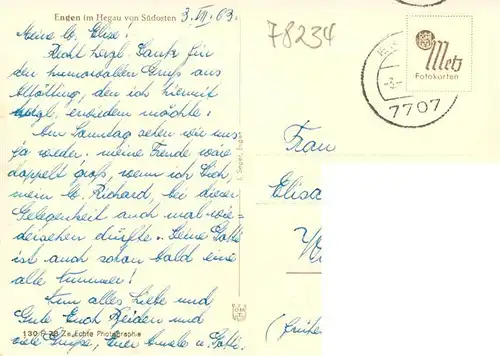 Engen im Hegau von Südosten
3. VII. 63.
78234
Meine lb. Elise!
Recht herzl. Dank für
den humorvollen Gruß aus
Altötting, den ich hiermit
herzl. erwidern möchte.
Am Sonntag sehen wir uns
ja wieder; meine Freude wäre
doppelt groß, wenn ich Dich,
mein lb. Richard, bei dieser
Gelegenheit auch mal wie-
dersehen dürfte. Deine Gotti
ist auch schon bald eine
alte Nummer!
Nun alles Liebe und
Gute Euch Beiden und
viele Grüße, Euer u. Gotti.
Metz
Fotokarten
7707
Frau
Elisa
130 Echte Photographie